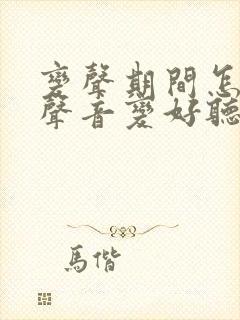 變聲期間怎
聲音變好聽
馬偕